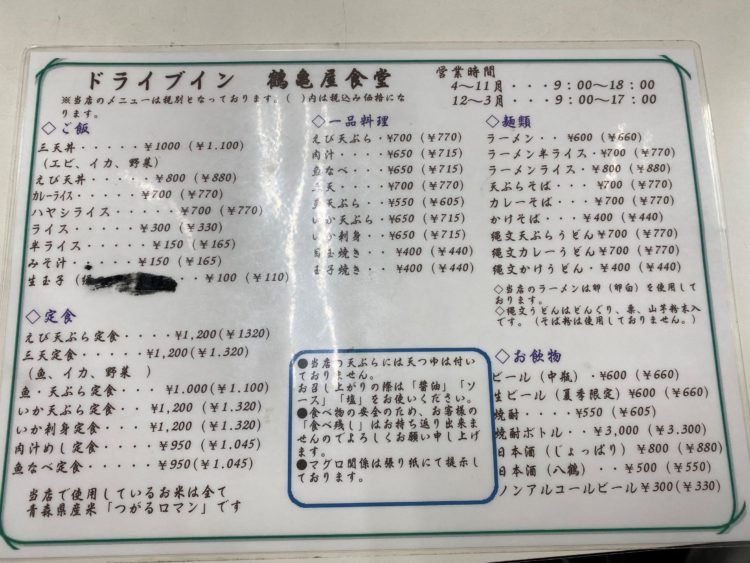 ドライブイン 鶴亀屋食堂
営業時間
4〜11月・・・9：00〜18：00
12〜3月・・・9：00〜17：00
※当店のメニューは税別となっております。( )内は税込み価格にな
ります。
◇ご飯
三天丼・・・・¥1000（¥1.100）
（エビ、イカ、野菜）
えび天丼・・・・・¥800（¥880）
カレーライス・・・・・¥700（¥770）
ハヤシライス・・・・・¥700（¥770）
ライス・・・・・¥300（¥330）
半ライス・・・・・¥150（¥165）
みそ汁・・・・・¥150（¥165）
生玉子（ ・・¥100（¥110）
◇定食
えび天ぷら定食・・・・¥1,200（¥1320）
三天定食・・・・¥1,200（¥1.320）
（魚、イカ、野菜 ）
魚・天ぷら定食・・・・¥1.000（¥1.100）
いか天ぷら定食・・・・¥1,200（¥1.320）
いか刺身定食・・・・¥1,200（¥1.320）
肉汁めし定食・・・・¥950（¥1.045）
魚なべ定食・・・・・¥950（¥1.045）
当店で使用しているお米は全て
青森県産米「つがるロマン」です
◇一品料理
えび天ぷら・¥700（¥770）
肉汁・・・・¥650（¥715）
魚なべ・・・¥650（¥715）
三天・・・・¥700（¥770）
天ぷら・・¥550（¥605）
いか天ぷら・¥650（¥715）
いか刺身・・¥650（¥715）
目玉焼き・・・¥400（¥440）
玉子焼き・・・¥400（¥440）
●当店の天ぷらには天つゆは付い
ておりません。
お召し上がりの際は「醤油」「ソ
ース」「塩」をお使いください。
●食べ物の安全のため、お客様の
「食べ残し」はお持ち返り出来ま
せんのでよろしくお願い申し上げ
ます。
●マグロ関係は張り紙にて提示し
ております。
◇麺類
ラーメン・・・¥600（¥660）
ラーメン半ライス・¥700（¥770）
ラーメンライス・・¥800（¥880）
天ぷらそば・・・・¥700（¥770）
カレーそば・・・・¥700（¥770）
かけそば・・・¥400（¥440）
縄文天ぷらうどん¥700（¥770）
縄文カレーうどん¥700（¥770）
縄文かけうどん・¥400（¥440）
◇当店のラーメンは卵（卵白）を使用して
おります。
◇縄文うどんはどんぐり、粟、山芋粉末入
です。（そば粉は使用しておりません。）
◇お飲物
ビール（中瓶）・¥600（¥660）
生ビール（夏季限定）¥600（¥660）
焼酎・・・・¥550（¥605）
焼酎ボトル・・¥3,000（¥3.300）
日本酒（じょっぱり）¥800（¥880）
日本酒（八鶴）・・¥500（¥550）
ノンアルコールビール¥300（¥330）